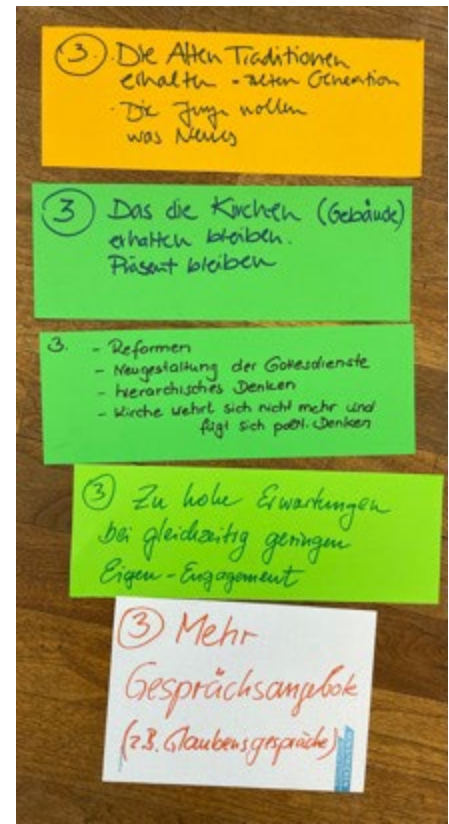 3. Die Alten Traditionen
erhalten - alten Generation
- Die Junge wollen
was Neues
3 Das die Kirchen (Gebäude)
erhalten bleiben.
Präsent bleiben
3. - Reformen
- Neugestaltung der Gottesdienste
- hierarchisches Denken
- Kirche wehrt sich nicht mehr und
fügt sich polit. Denken
3 Zu hohe Erwartungen
bei gleichzeitig geringen
Eigen-Engagement
3 Mehr
Gesprächsangebote
(z.B. Glaubensgespräche)